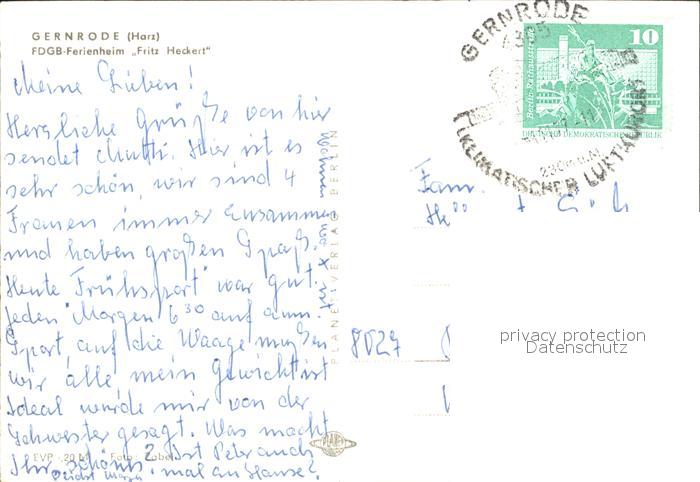 GERNRODE (Harz)
FDGB-Ferienheim „Fritz Heckert"
Meine Lieben!
Herzliche Grüße von hier
sendet Mutti. Hier ist es
sehr schön, wir sind 4
Frauen immer zusammen
und haben großen Spaß.
Heute „Frühsport" war gut.
jeden Morgen 6³⁰ auf zum
Sport, auf die Waage mußten
wir alle mein Gewicht ist
Ideal wurde mir von der
Schwester gesagt. Was macht
Ihr schönes? Ist Peter auch
mal zu Hause?
EVP -,20 M Foto:
PLANET-VERLAG BERLIN
PLANET
GERNRODE
KLIMATISCHER LUFTKURORT
10
Berlin, Rathausstraße
DEUTSCHE DEMOKRATISCHE REPUBLIK
Fam.
8027
privacy protection
Datenschutz